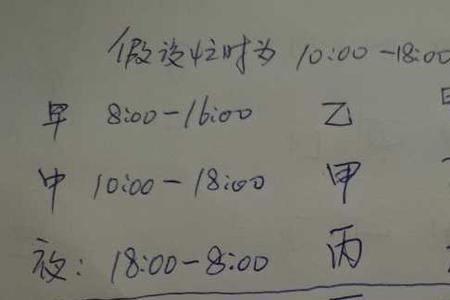 假设忙时为 10:00-18:00
早 8:00-16:00 乙
中 10:00-18:00 甲
夜: 18:00-8:00 丙